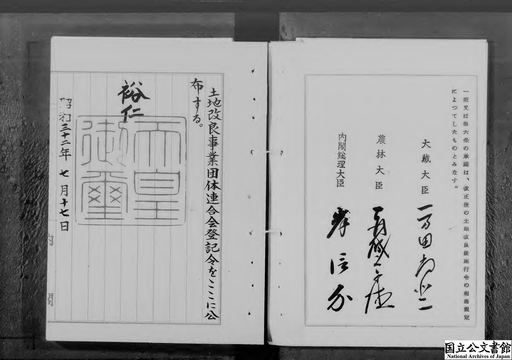 一項又は第六条の承認は、改正後の土地改良法施行令の相当規定
によつてしたものとみなす。
大蔵大臣
一万田尚登
農林大臣
内閣総理大臣
岸信介
土地改良事業団体連合会登記令をここに公
布する。
裕仁
天皇
御璽
昭和三十二年七月十七日
内閣
国立公文書館
National Archives of Japan